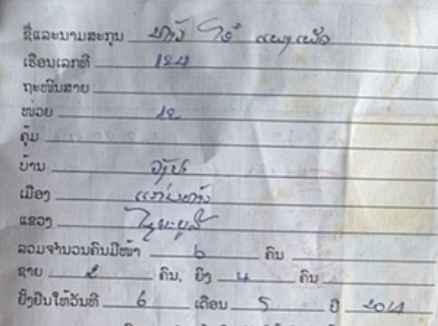 ຊື່ແລະນາມສະກຸນ ທ້າວ
ເຮືອນເລກທີ 124
ຖະໜົນສາຍ
ໜ່ວຍ 12
ຄຸ້ມ
ບ້ານ
ເມືອງ ແກ່ນທ້າວ
ແຂວງ ໄຊຍະບູລີ
ລວມຈຳນວນຄົນມີໜ້າ 6 ຄົນ
ຊາຍ 2 ຄົນ, ຍິງ 4 ຄົນ
ຢັ້ງຢືນໃຫ້ວັນທີ 6 ເດືອນ 5 ປີ 2014